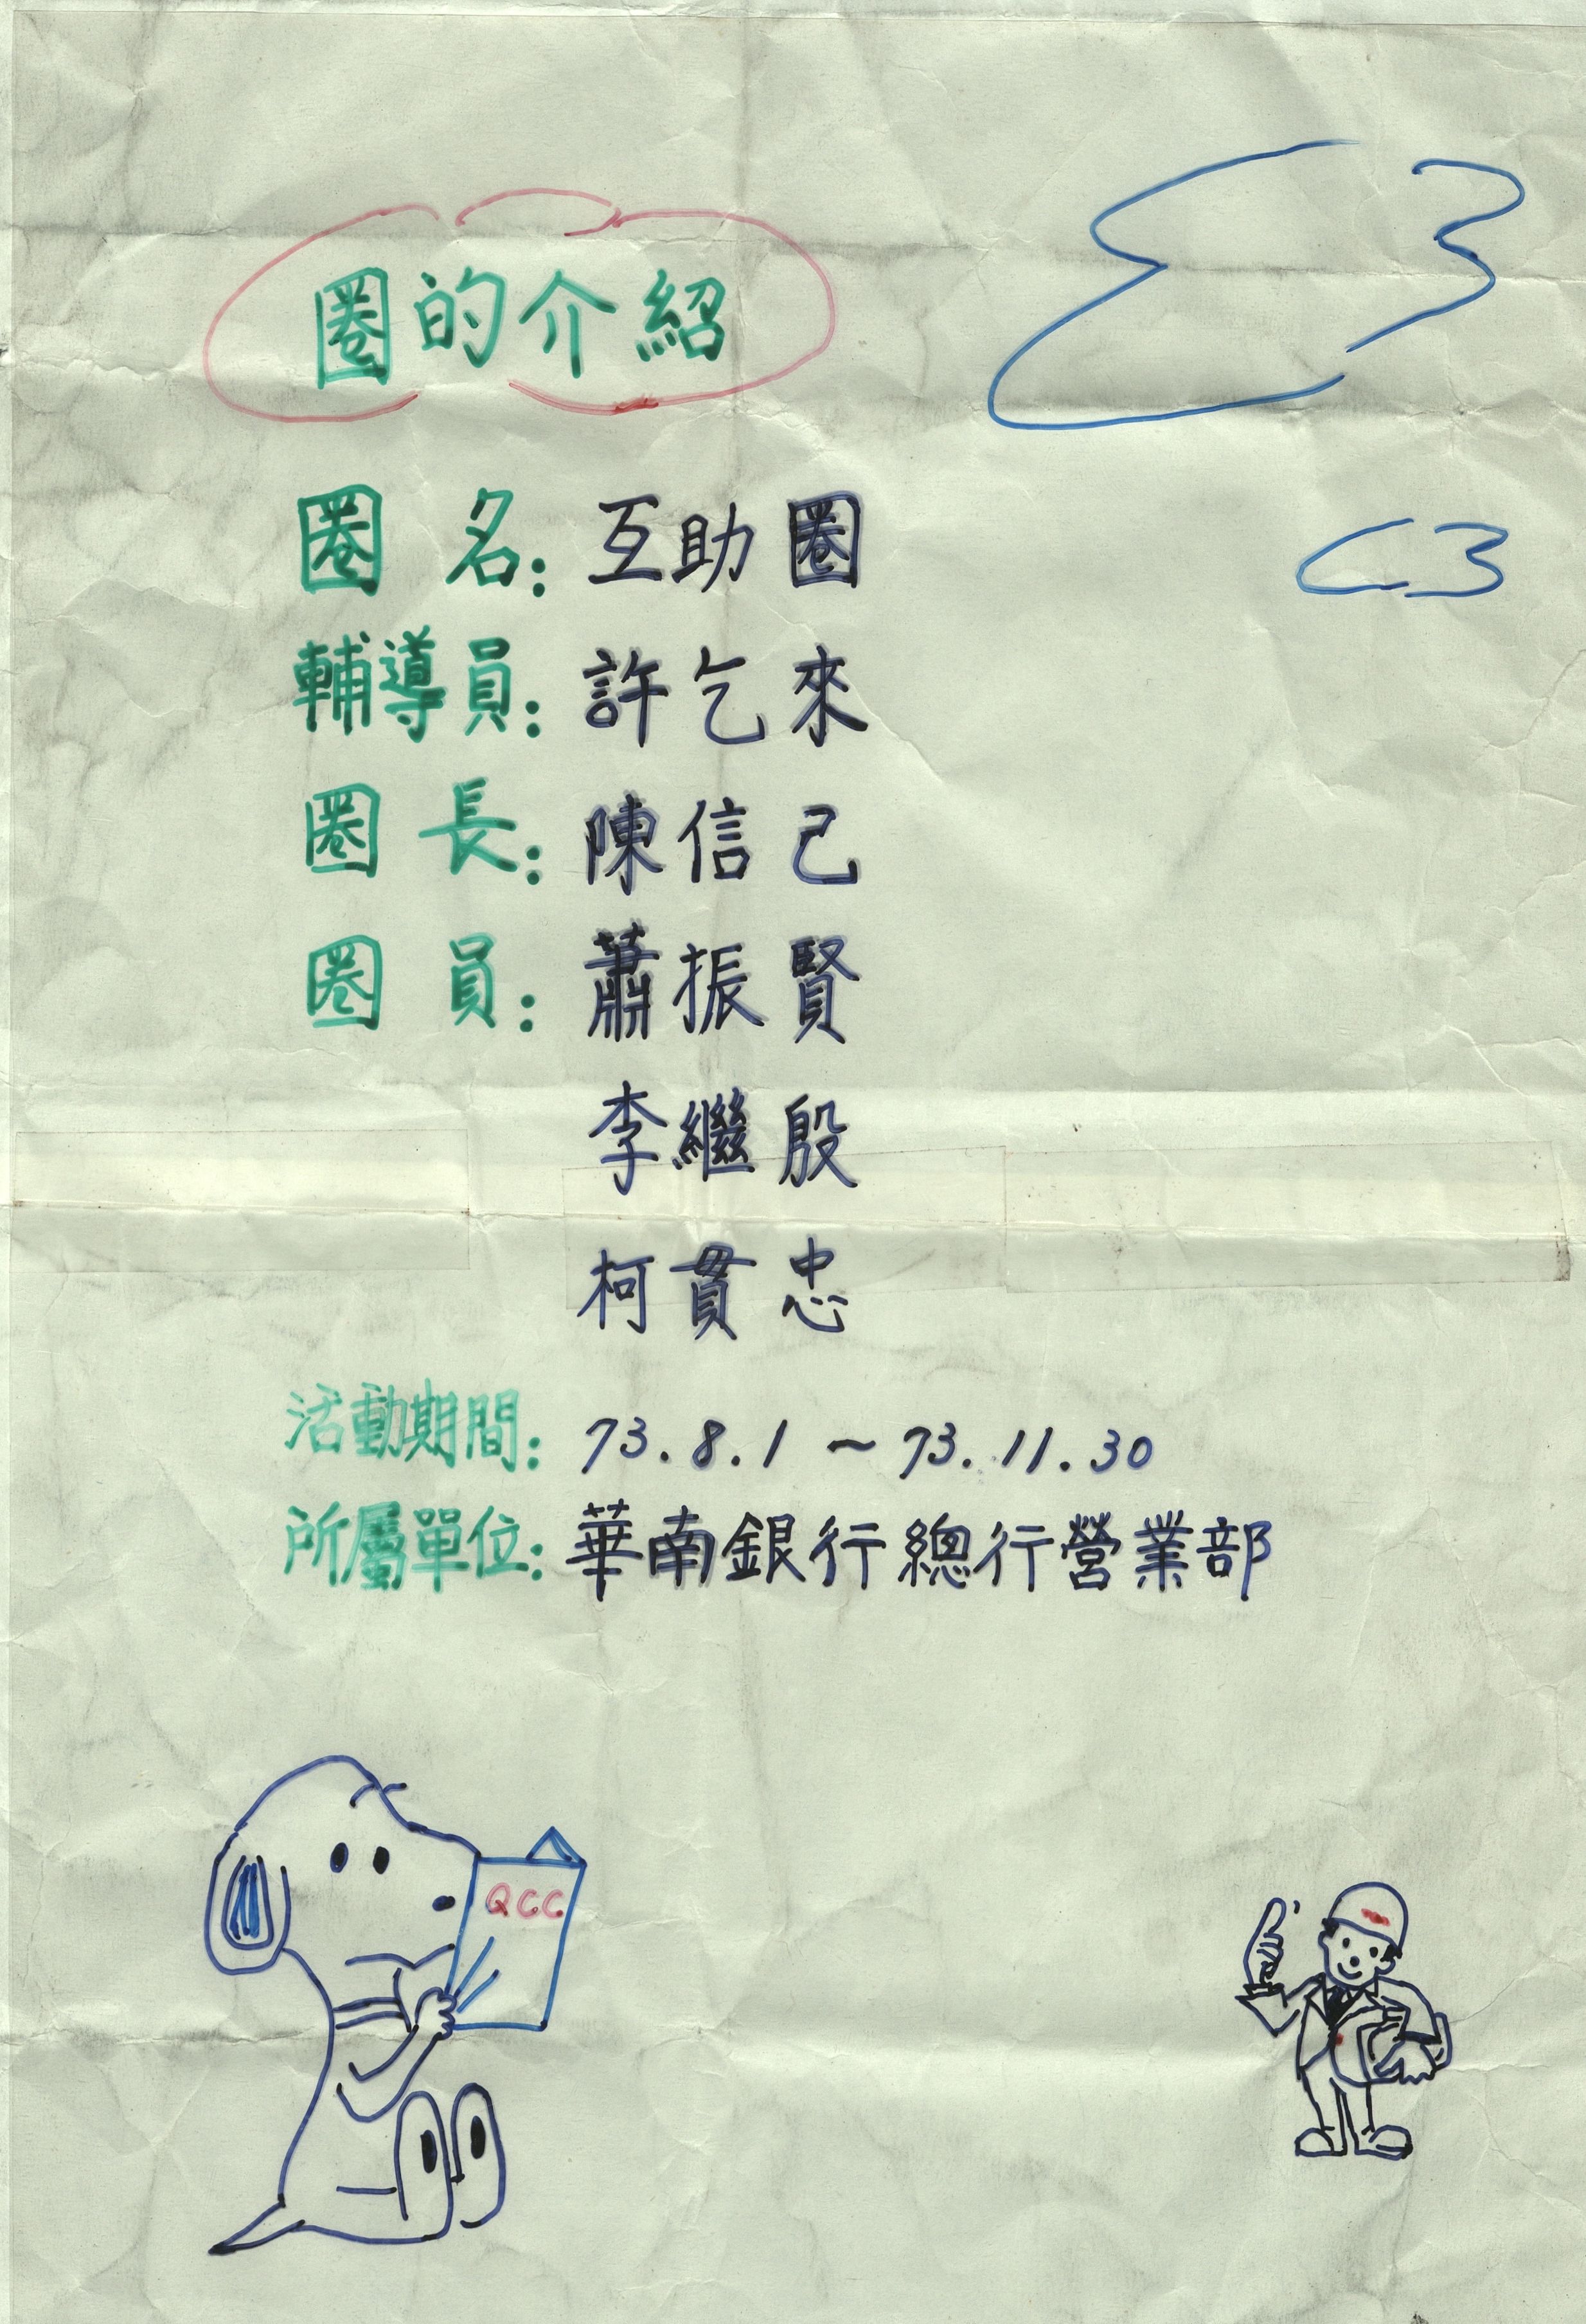 圈的介紹
圈名：互助圈
輔導員：許乞來
圈長：陳信己
圈員：蕭振賢
李繼殷
柯貫忠
活動期間：73.8.1～73.11.30
所屬單位：華南銀行總行營業部
QCC